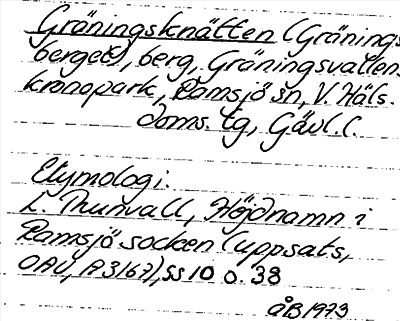 Gröningsknätten (Grönings-
berget), berg, Gröningsvallens
kronopark, Ramsjö sn, V. Häls.
doms. tg, Gävl. l.
Etymologi:
L. Thunvall, Höjdnamn i
Ramsjö socken (uppsats,
OAU, A 3167), ss 10 o. 38
ÅB 1973